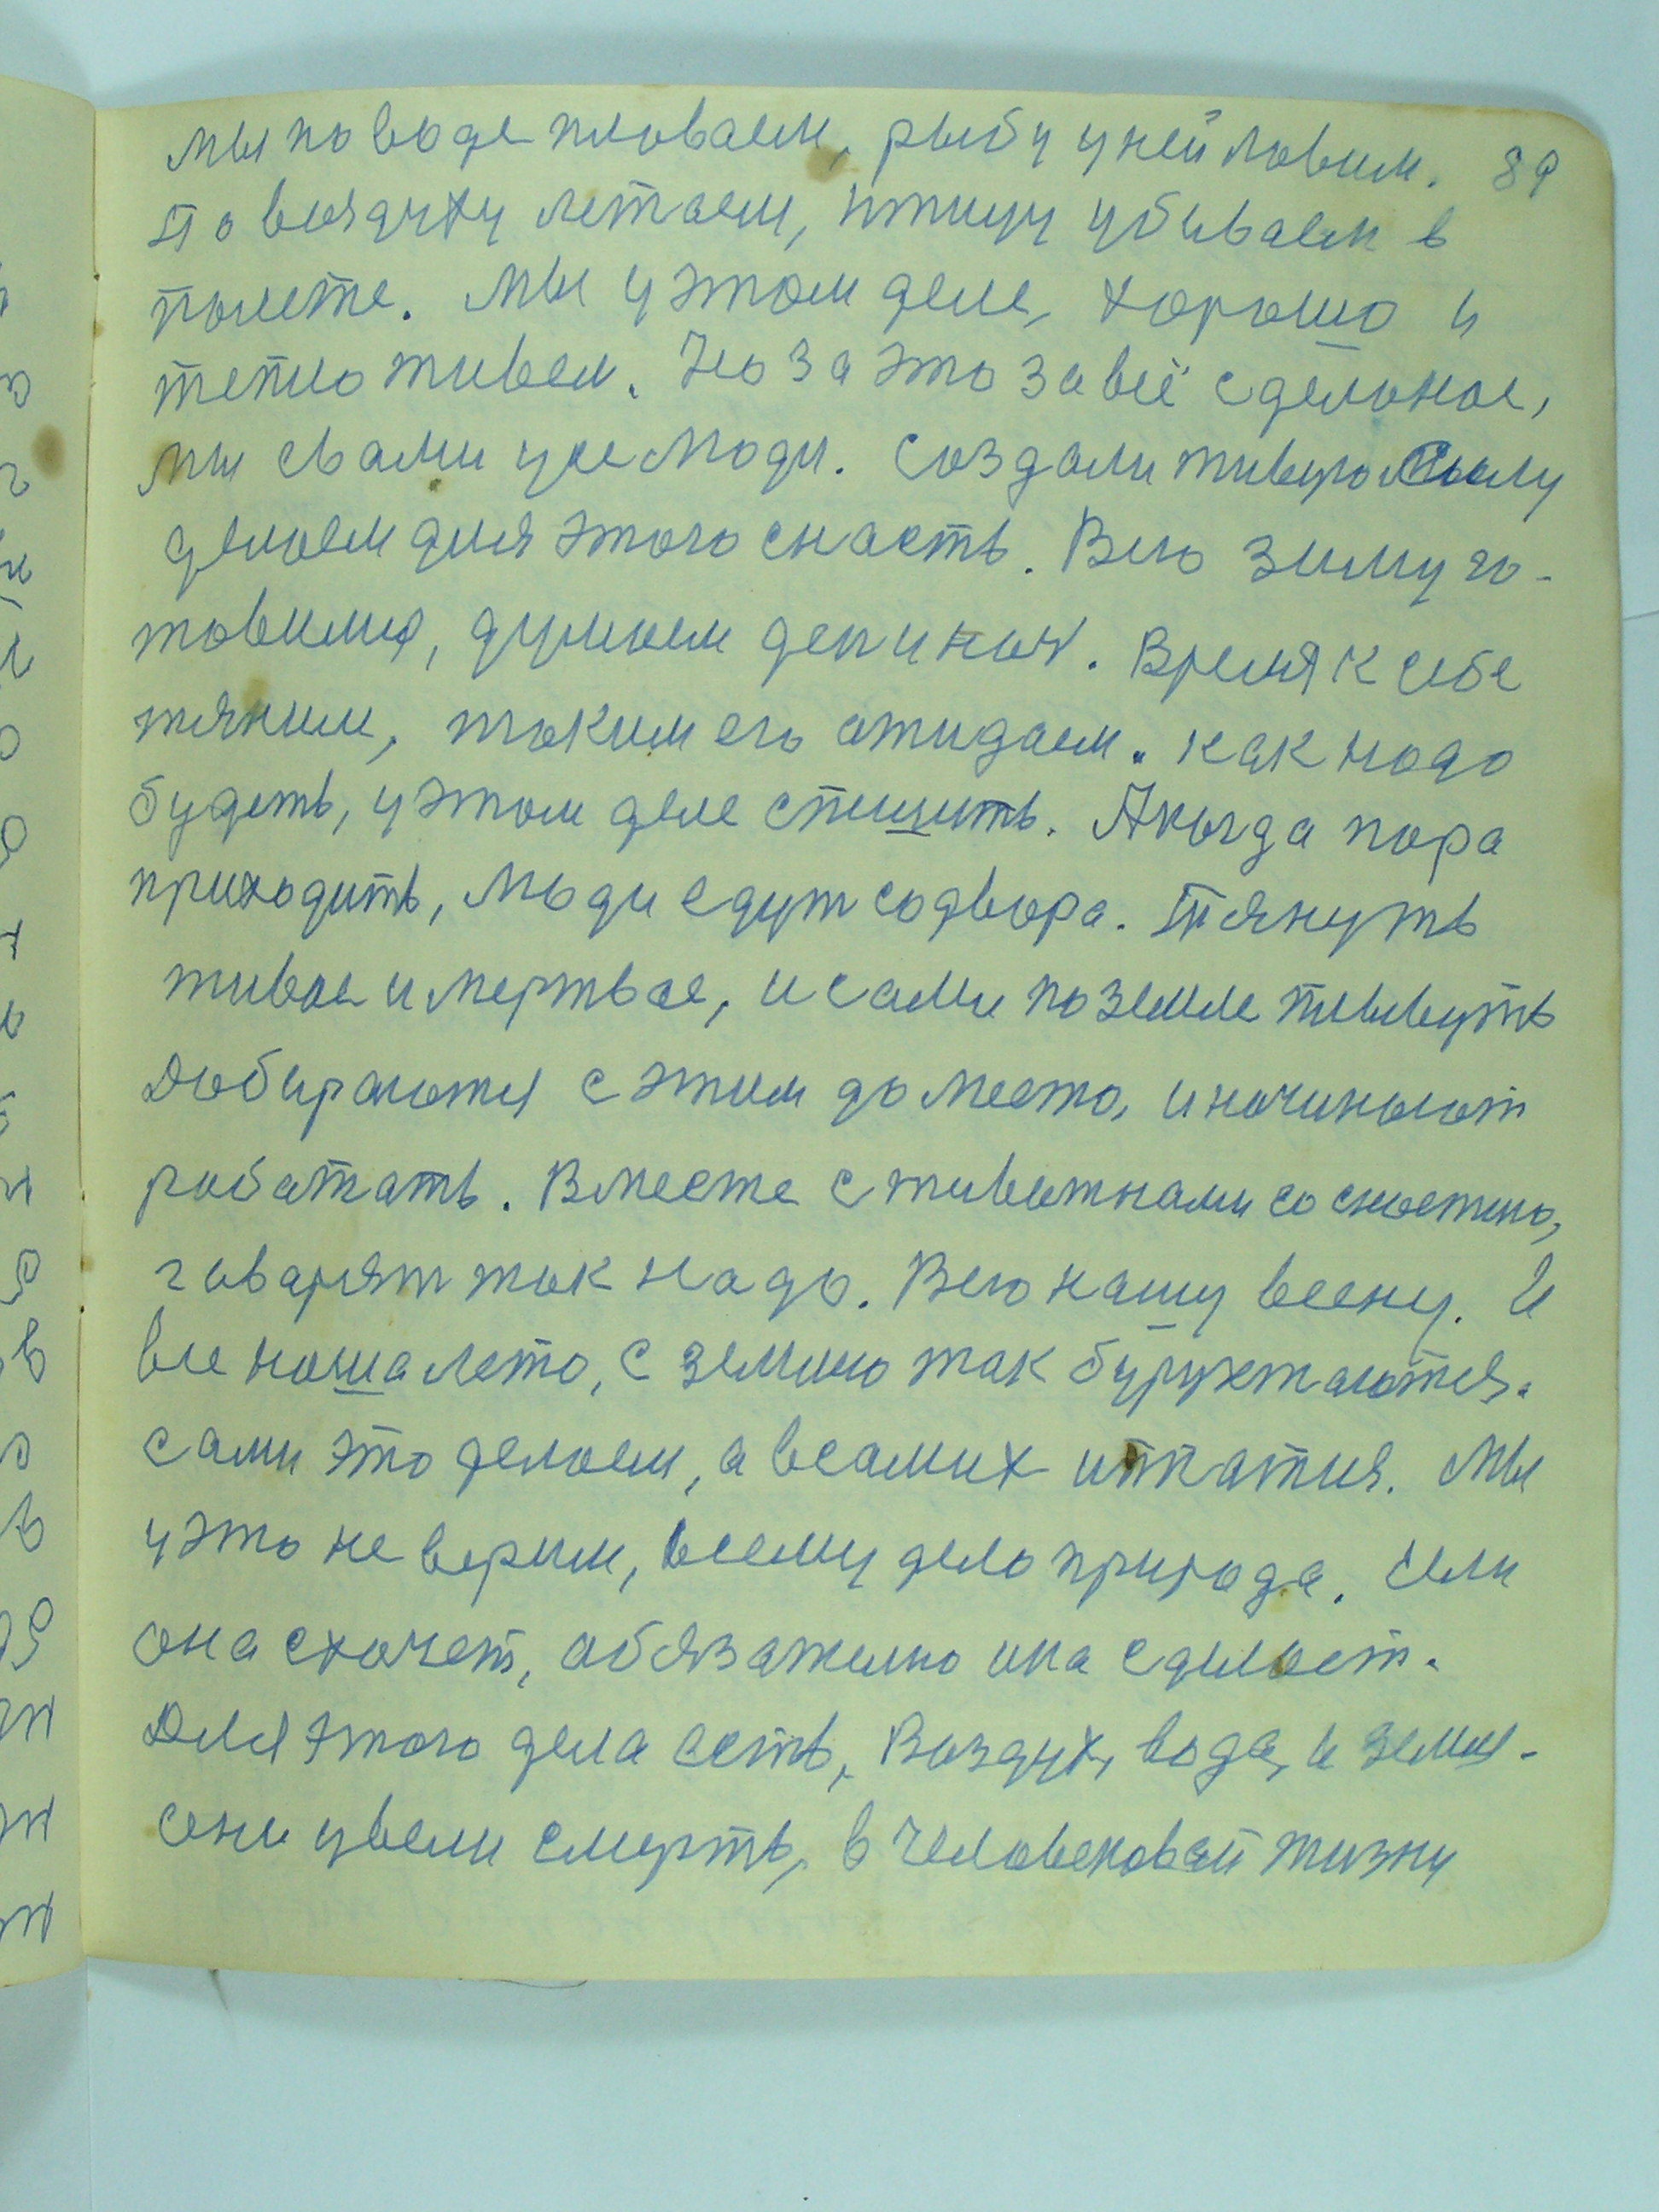 мы по воде плаваем, рыбу у ней ловим. 89
По воздуху летаем, птицу убиваем в
полете. Мы у этом деле, хорошо и
тепло живем. Но за это за всё сделаное,
мы свами усе люди. Создали живую силу
делаем для этого снасть. Всю зиму го-
товимся, думаем ден и ноч. Время к себе
тяним, таким его ожидаем. как надо
будеть, у этом деле спишить. А когда пора
приходить, люди едут со двора. Тянуть
живое и мертвое, и сами по земле плывуть
Добираются с этим до места, и начинают
работать. Вместе с животнами со снастию,
говарят так надо. Всю нашу весну. И
все наша лето, с землю так бурухтаются.
сами это делаем, а всамих ипатия. Мы
у это не верим, всему дело природа. Если
она схочет, обязательно она сделает.
Для этого дела есть, Воздух, вода, и земля-
они увели смерть, в человековай жизни